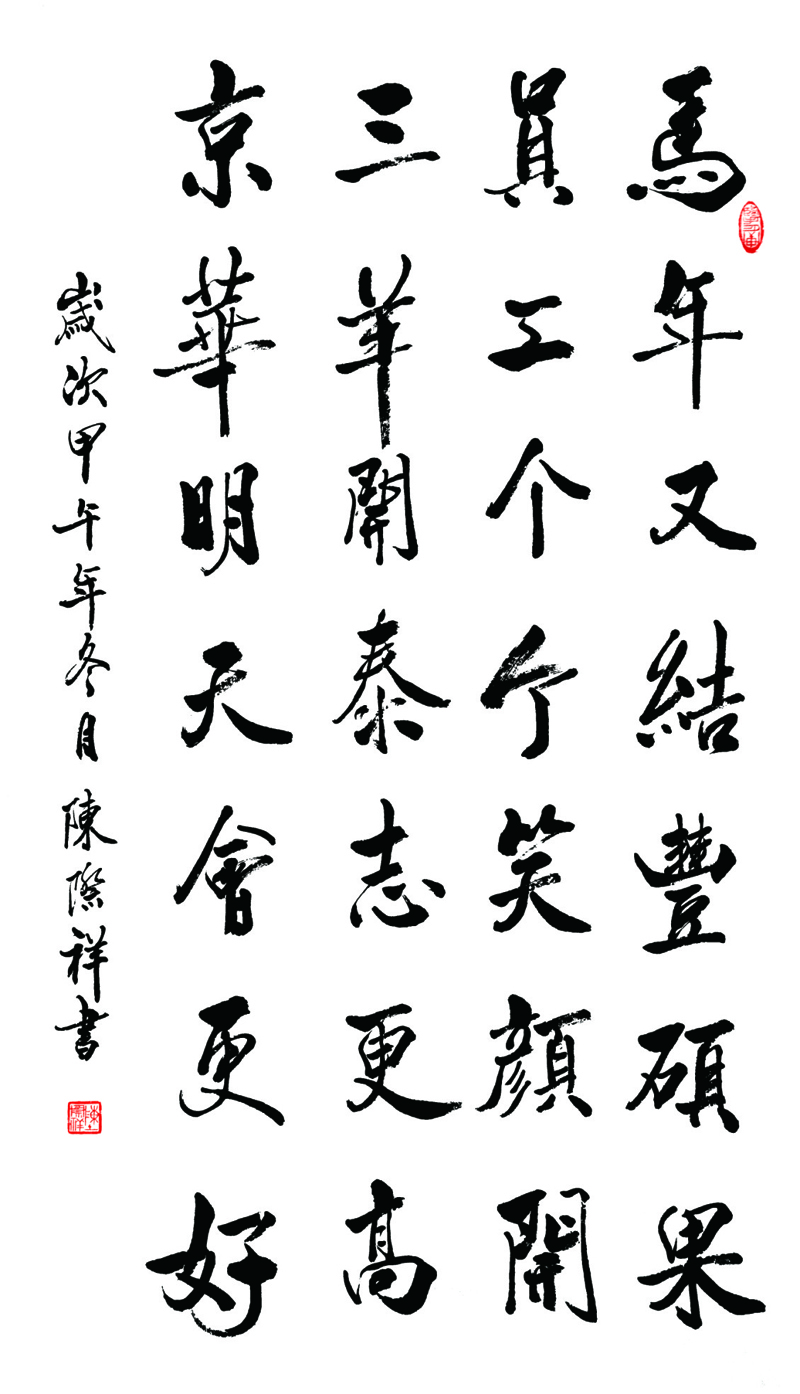 馬年又結豐碩果
員工个个笑顏開
三羊開泰志更高
京華明天會更好
歲次甲午年冬月陳際祥書